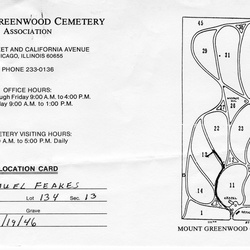 GREENWOOD CEMETERY
ASSOCIATION
ET AND CALIFORNIA AVENUE
CAGO, ILLINOIS 60655
PHONE 233-0136
OFFICE HOURS:
ugh Friday 9:00 A.M. to 4:00 P.M.
day 9:00 A.M. to 1:00 P.M.
ETERY VISITING HOURS:
0 A.M. to 5:00 P.M. Daily
LOCATION CARD
UEL FEAKES
Lot 134 Sec. 13
Grave
/19/46
45
31
29
28
15
14
13
12
11
1
OFFICE
MOUNT GREENWOOD